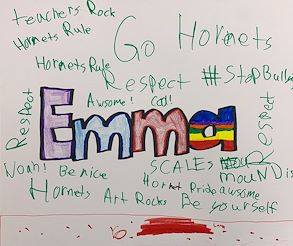 teachers Rock
Hornets Rule
Go Hornets
Hornets Rule
Respect #StopBully
Awsome! Cool!
Respect
Emma
Respect
Noah! Be nice
SCALES
mouNDis
Hornets Art Rocks
Hornet Pride awsome
Be yourself